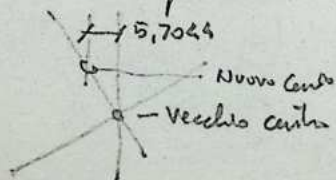 5,7044
Nuovo Centro
Vecchio centro